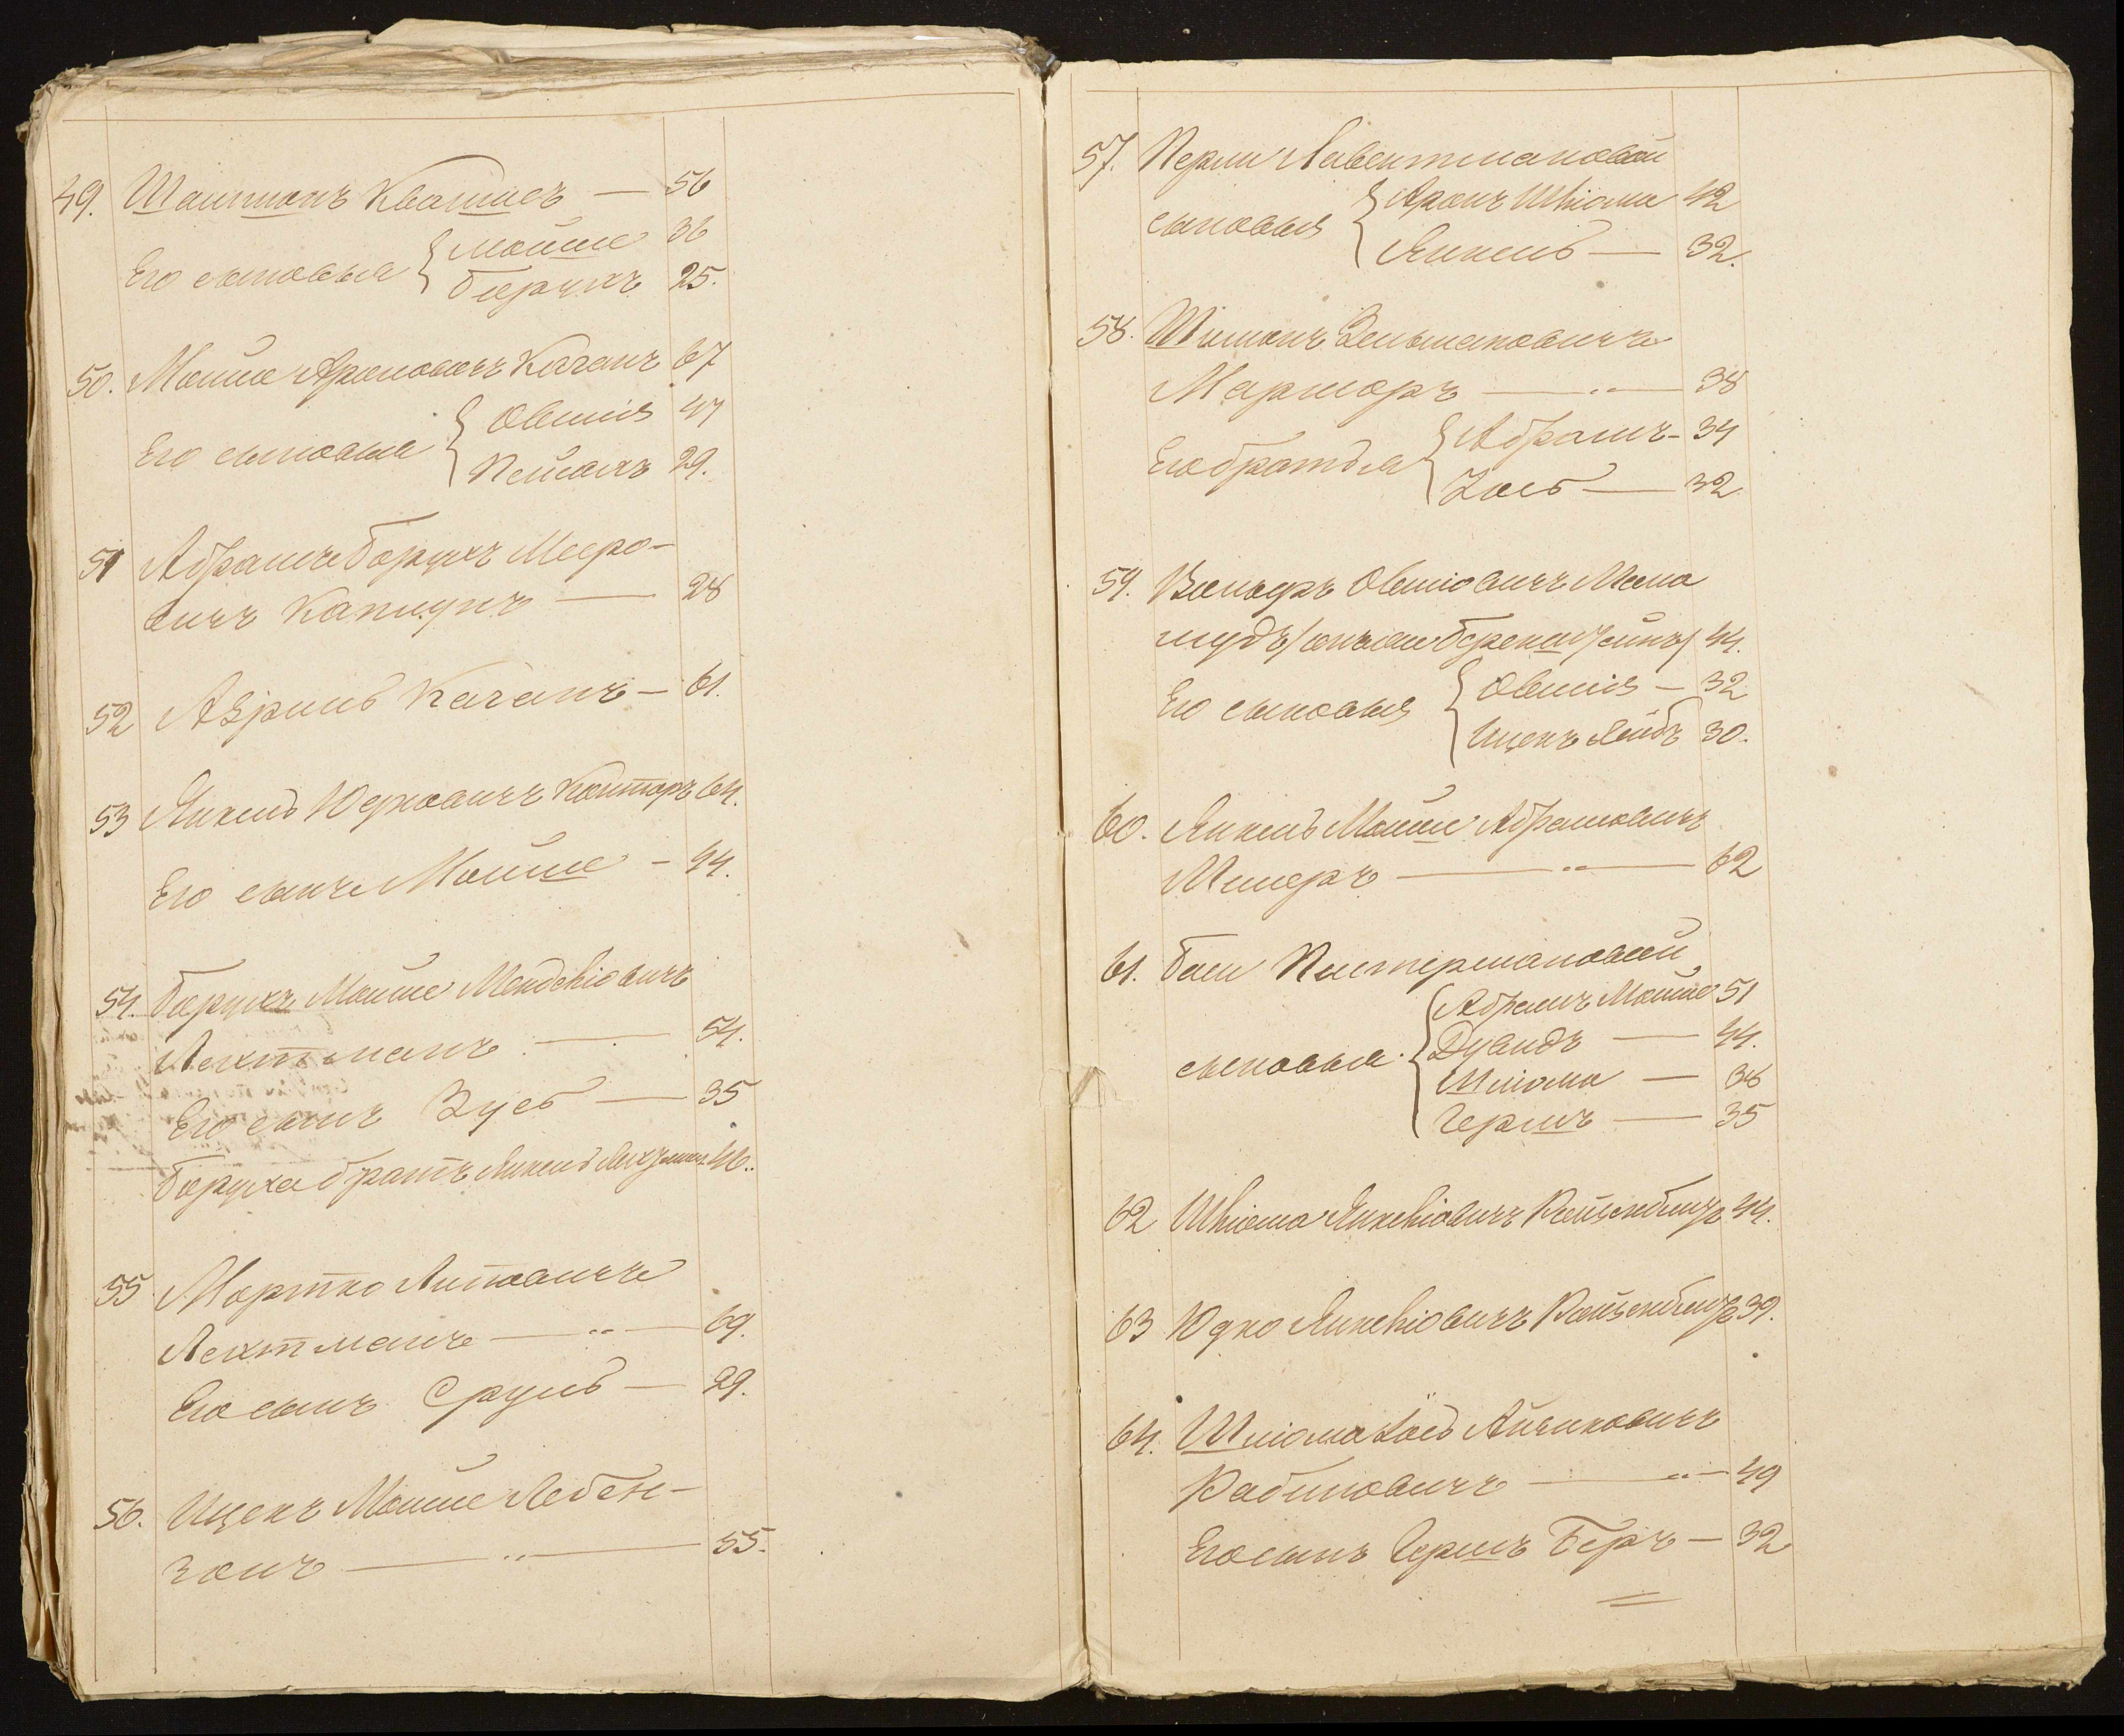 49. Шаипонъ Квашсъ — 56
Его сыновья { Мойше 36
Борухъ 25.
50. Мойше Ароновичъ Каганъ 67
Его сыновья { Овшій 47
Пейсахъ 29.
51 Абрамъ Борухъ Мееро-
вичъ Капнунъ — 28
52 Азриль Каганъ — 61.
53 Янкель Юдковичъ Канторъ 64.
Его сынъ Мойше — 44.
54. Борухъ Мойше Менделіовичъ
Лехтманъ — 54.
Его сынъ Зусь — 35
Боруха братъ Янкель 46.
55 Мортко Литовичъ
Лехтманъ — " — 69.
Его сынъ Сруль — 29.
56. Ицекъ Мойше Лебен-
зонъ — " — 55.
57. Перли Левентмановой
сыновья { Аронъ Шліома 42
Янкель — 32.
58. Шимонъ Зельмановичъ
Марморъ — " — 38
Его братья { Абрамъ - 34
Іось — 32
59. Вольфъ Овшіовичъ Мама
лудъ / 44.
Его сыновья { Овшій — 32
Ицекъ Лейбъ 30.
60. Янкель Мойше Абрамовичъ
Милеръ — " — 62
61. Баси Пистермановой
сыновья { Абрамъ Мойше 51
Дувидъ — 44.
Шліома — 38
Гершъ — 35
62 Шліома Янкеліовичъ Райзенбергъ 44.
63 Юдко Янкеліовичъ Райзенбергъ 39.
64. Шліома Іось Айзиковичъ
Рабиновичъ — " — 49
Его сынъ Гершъ Беръ — 32